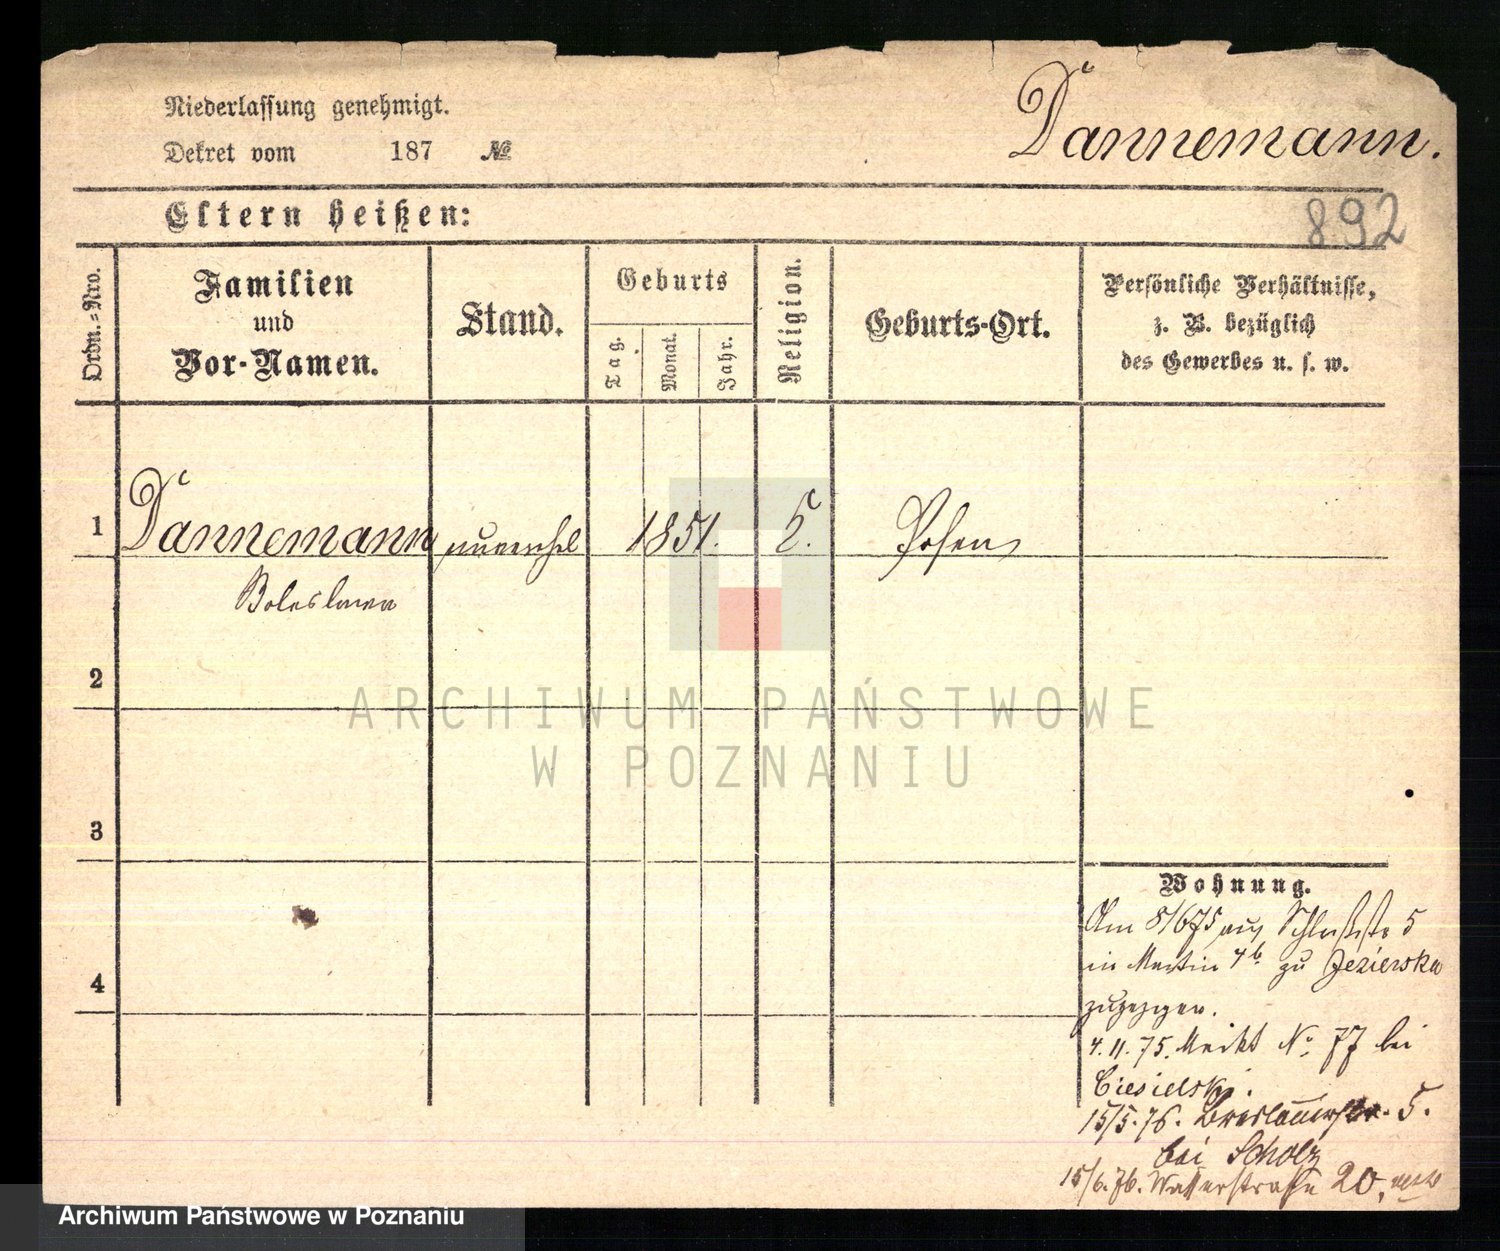 Niederlassung genehmigt.
Dekret vom 187 №
Dannemann.
Eltern heißen:
892
Ordn.=Nro.
Familien
und
Vor-Namen.
Stand.
Geburts
Tag.
Monat.
Jahr.
Religion.
Geburts-Ort.
Persönliche Verhältnisse,
z. B. bezüglich
des Gewerbes u. s. w.
1
Dannemann
unverehel
1851.
Posen
Boleslaw
2
3
4
ARCHIWUM PAŃSTWOWE
W POZNANIU
Wohnung.
Am 8/6 75 aus 5
in Martin 4b zu Jezierska
zugezogen.
4.11.75. Markt No. 77 bei
Ciesielski.
15/5.76. Breslauerstr. 5.
bei Scholz
15/6.76. Wasserstraße 20.
Archiwum Państwowe w Poznaniu